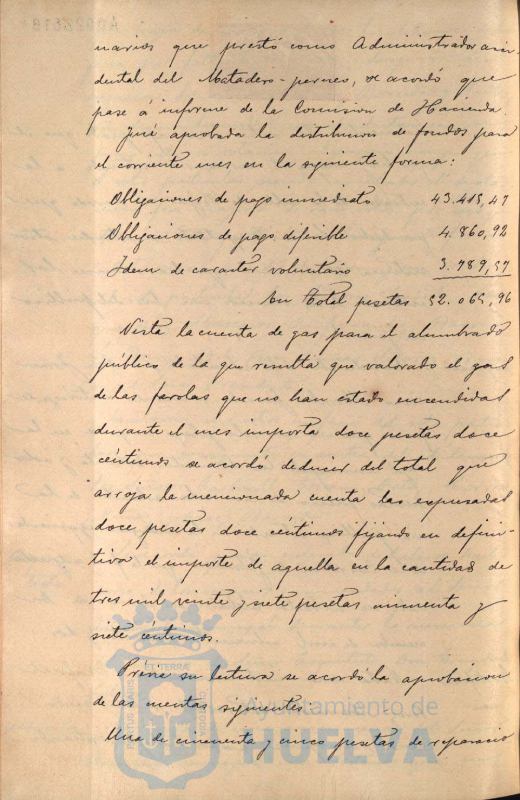 narios que prestó como Administrador acci-
dental del Matadero-perneo, se acordó que
pase á informe de la Comision de Hacienda.
Fué aprobada la distribucion de fondos para
el corriente mes en la siguiente forma:
Obligaciones de pago inmediato 43.415,47
Obligaciones de pago diferible 4.860,92
Idem de caracter voluntario 3.789,57
En total pesetas 52.065,96
Vista la cuenta de gas para el alumbrado
público de la que resulta que valorado el gas
de las farolas que no han estado encendidas
durante el mes importa doce pesetas doce
céntimos se acordó deducir del total que
arroja la mencionada cuenta las expresadas
doce pesetas doce céntimos fijando en defini-
tiva el importe de aquella en la cantidad de
tres mil veinte y siete pesetas cincuenta y
siete céntimos.
Prévia su lectura se acordó la aprobacion
de las cuentas siguientes:
Una de cincuenta y cinco pesetas de reparacio
Ayuntamiento de
HUELVA